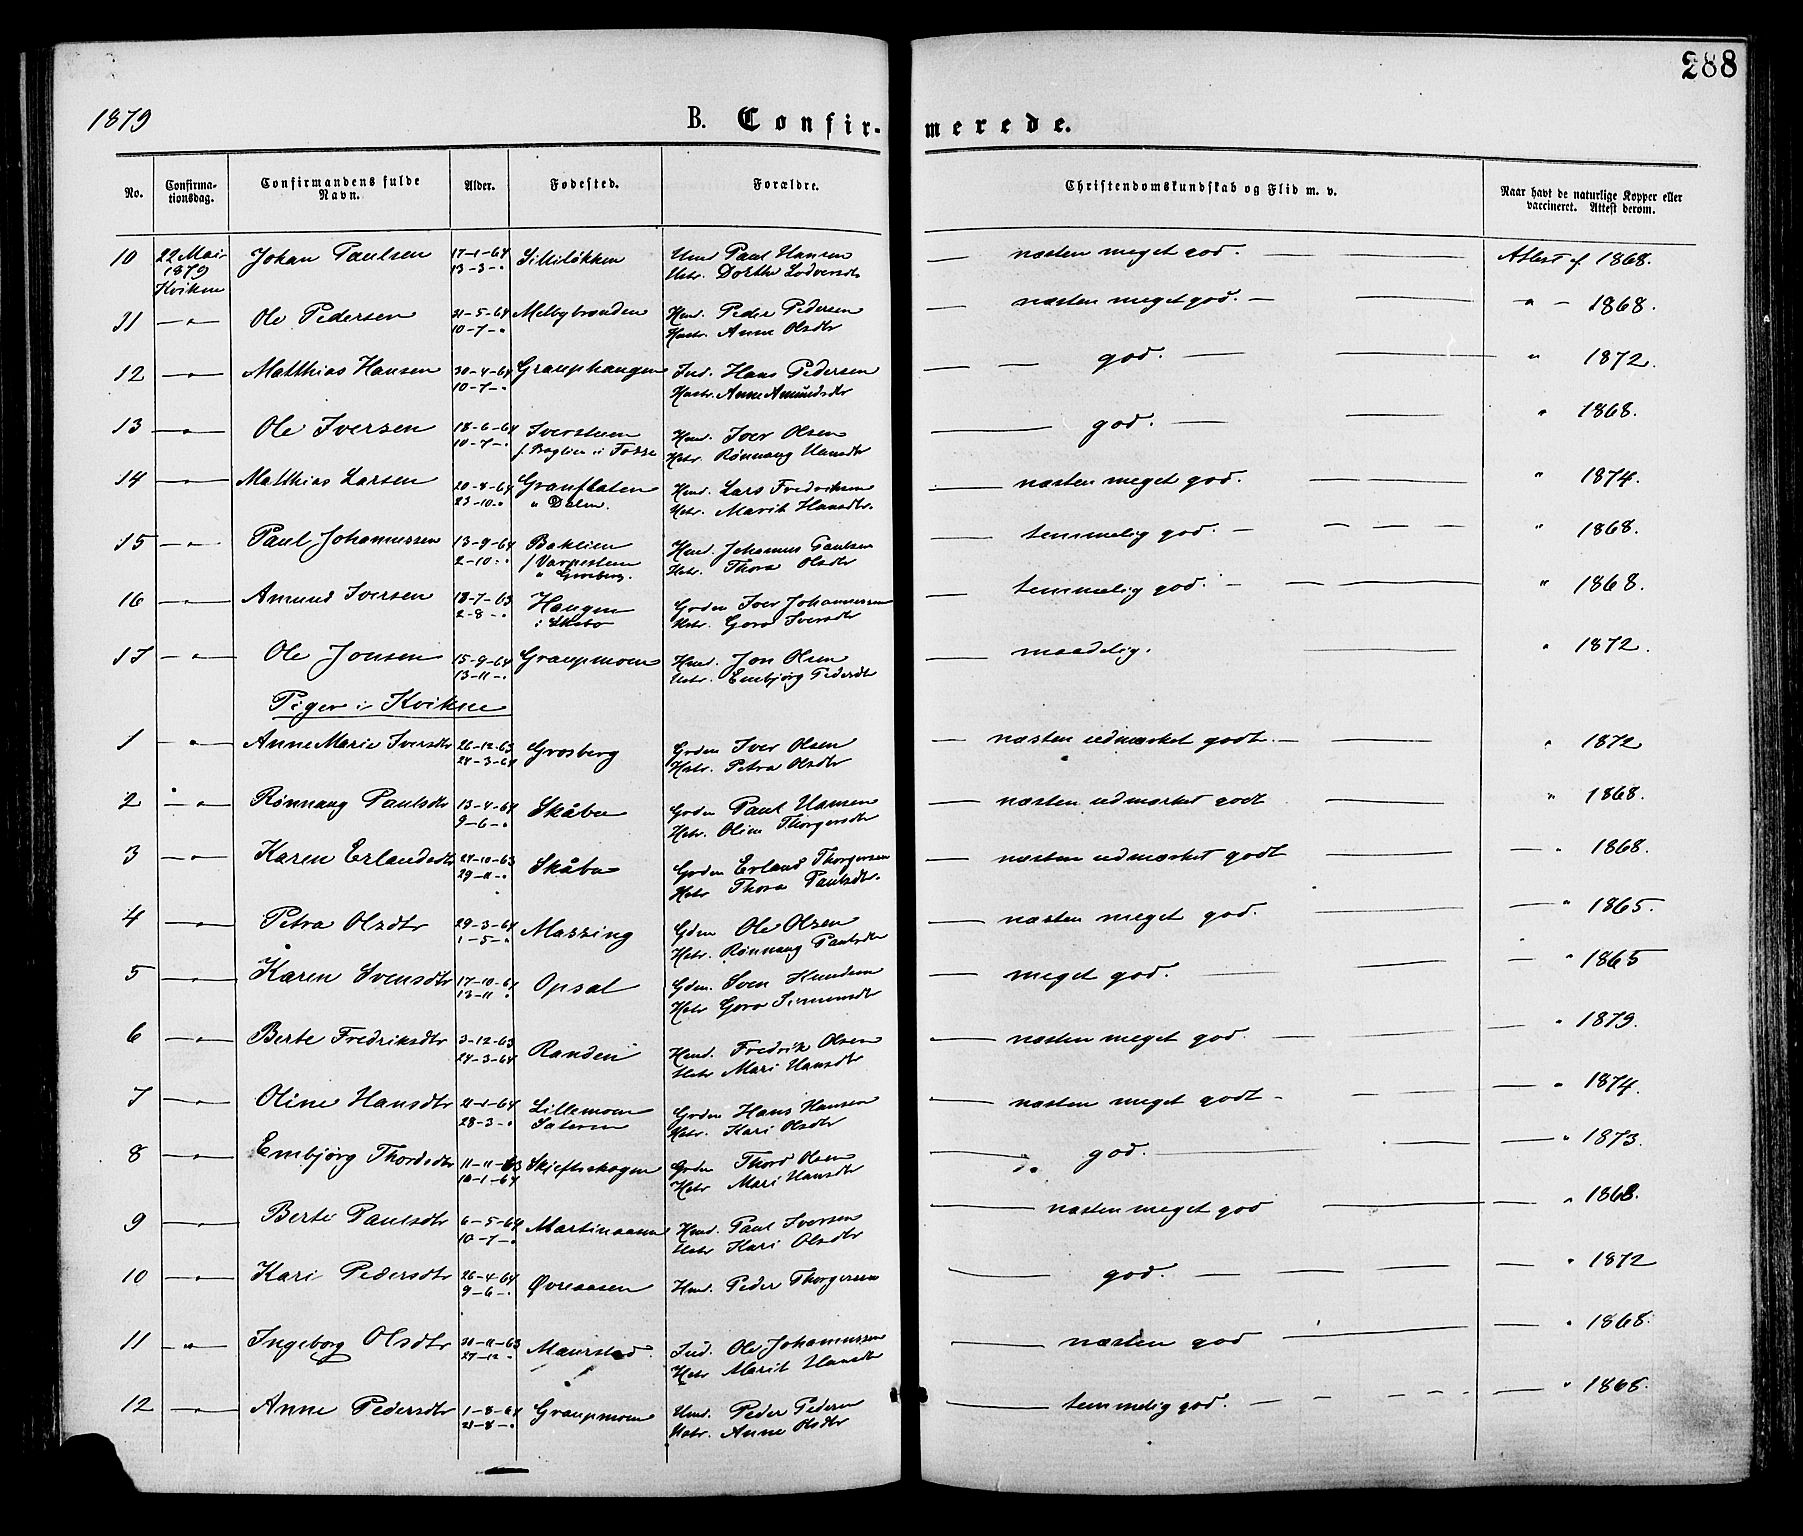 288
1879
B. Confirmerede.
No. | Confirmationsdag. | Confirmandens fulde Navn. | Alder. | Fødested. | Forældre. | Christendomskundskab og Flid m. v. | Naar havt de naturlige Kopper eller vaccineret. Attest derom.
10 | 22 Mai 1879 Kvikne | Johan Paulsen | 17-1-64 13-3-" | | Hmd Paul Hansen Hstr. Dorthe | næsten meget god. | Attest af 1868.
11 | " | Ole Pedersen | 21-5-64 10-7-" | Melbybraaden | Hmd. Peder Pedersen Hustr. Anne Olsdtr | næsten meget god. | " 1868.
12 | " | Matthias Hansen | 30-4-64 10-7-" | Grauphaugen | Ind. Hans Pedersen Hustr. Anne Amundsdtr | god. | " 1872.
13 | " | Ole Iversen | 18-6-64 10-7-" | Iversteen f. i Fosse | Hmd. Iver Olsen Hstr. Rønnaug Hansdtr | god. | " 1868.
14 | " | Matthias Larsen | 20-4-64 23-10-" | Granflaten " Dalen. | Hmd. Lars Fredriksen Hstr. Marit Hansdtr. | næsten meget god. | " 1874.
15 | " | Paul Johannessen | 13-9-64 2-10-" | Baklien f. Varpesteen " Grosberg. | Hmd. Johannes Paulsen Hstr. Thora Olsdtr | temmelig god. | " 1868.
16 | " | Amund Iversen | 18-7-63 2-8-" | Haugen i Skabo | Grdm Iver Johannessen Hstr. Goro Iversdtr | temmelig god. | " 1868.
17 | " | Ole Jonsen | 15-9-64 13-11-" | Graupmoen | Hmd. Jon Olsen Hstr. Embjørg Pedersdtr | maadelig. | " 1872.
Piger i Kvikne
1 | " | Anne Marie Iversdtr | 26-12-63 24-3-64 | Grosberg | Grdm Iver Olsen Hstr. Petra Olsdtr | næsten udmærket godt. | " 1872
2 | " | Rønnaug Paulsdtr | 13-4-64 9-6-" | Skåbu | Grdm Paul Hansen Hstr. Oline Thorgersdtr | næsten udmærket godt | " 1868.
3 | " | Karen Erlandsdtr | 24-10-63 29-11-" | Skåbu | Grdm Erland Thorgersen Hstr Thora Paulsdtr. | næsten udmærket godt | " 1868.
4 | " | Petra Olsdtr | 29-3-64 1-5-" | Massing | Gdm Ole Olsen Hstr. Rønnaug Paulsdtr | næsten meget god. | " 1865.
5 | " | Karen Svensdtr | 17-10-64 13-11 " | Opsal | Gdm. Sven Hstr Goro Simensdtr | meget god. | " 1865
6 | " | Berte Fredriksdtr | 3-12-63 24-3-64 | Randen | Hmd. Fredrik Olsen Hstr Mari Hansdtr | næsten meget god. | " 1879.
7 | " | Oline Hansdtr | 21-1-64 28-3-" | Lillemoen Sæteren | Grdm Hans Hansen Hstr. Kari Olsdtr | næsten meget godt | " 1874.
8 | " | Embjørg Thordsdtr | 11-11-63 10-1-64 | Skjefteskogen | Grdm Thord Olsen Hstr Mari Hansdtr | god. | " 1873.
9 | " | Berte Paulsdtr | 6-5-64 10-7-" | Martinaasen | Hmd. Paul Iversen Hstr Kari Olsdtr | næsten meget god | " 1868.
10 | " | Kari Pedersdtr | 26-4-64 9-6-" | Øvreaasen | Hmd. Peder Thorgersen | god. | " 1872
11 | " | Ingeborg Olsdtr | 20-11-63 27-12 " | Maurstad. | Ind. Ole Johannessen Hstr Marit Hansdtr | næsten god | " 1868.
12 | " | Anne Pedersdtr | 1-8-64 21-8-" | Graupmoen | Hmd. Peder Pedersen Hstr. Anne Olsdtr | temmelig god. | " 1868.